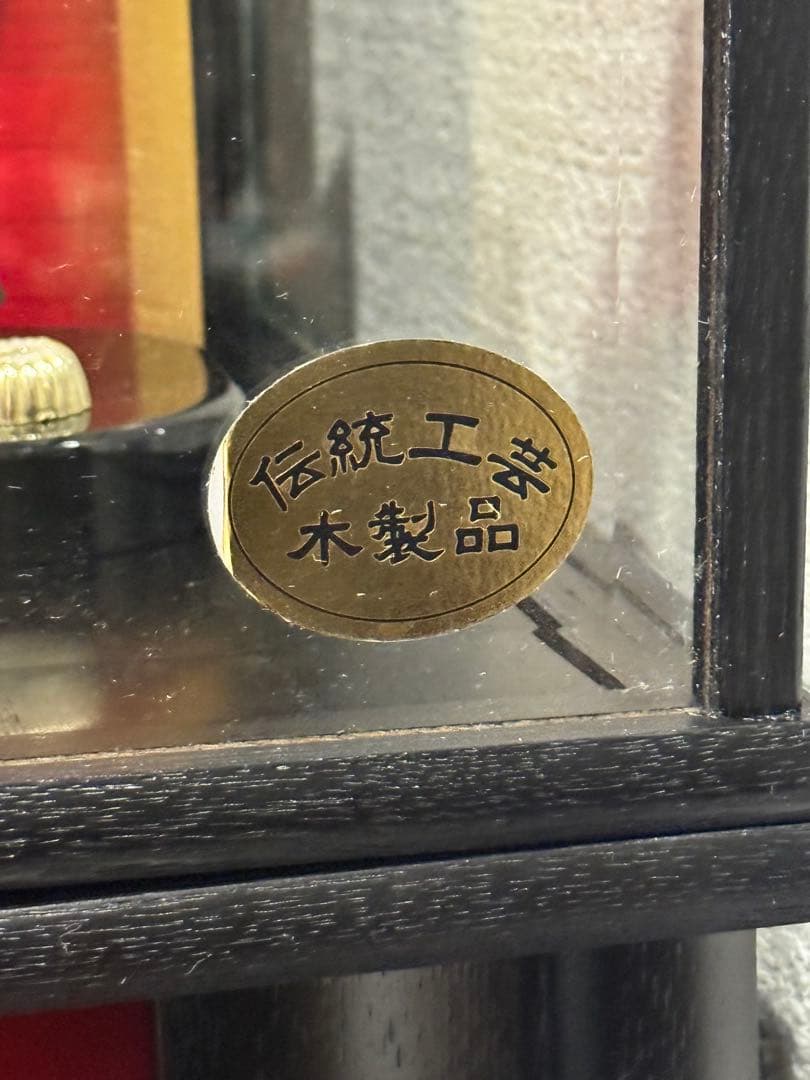 伝統工芸
木製品